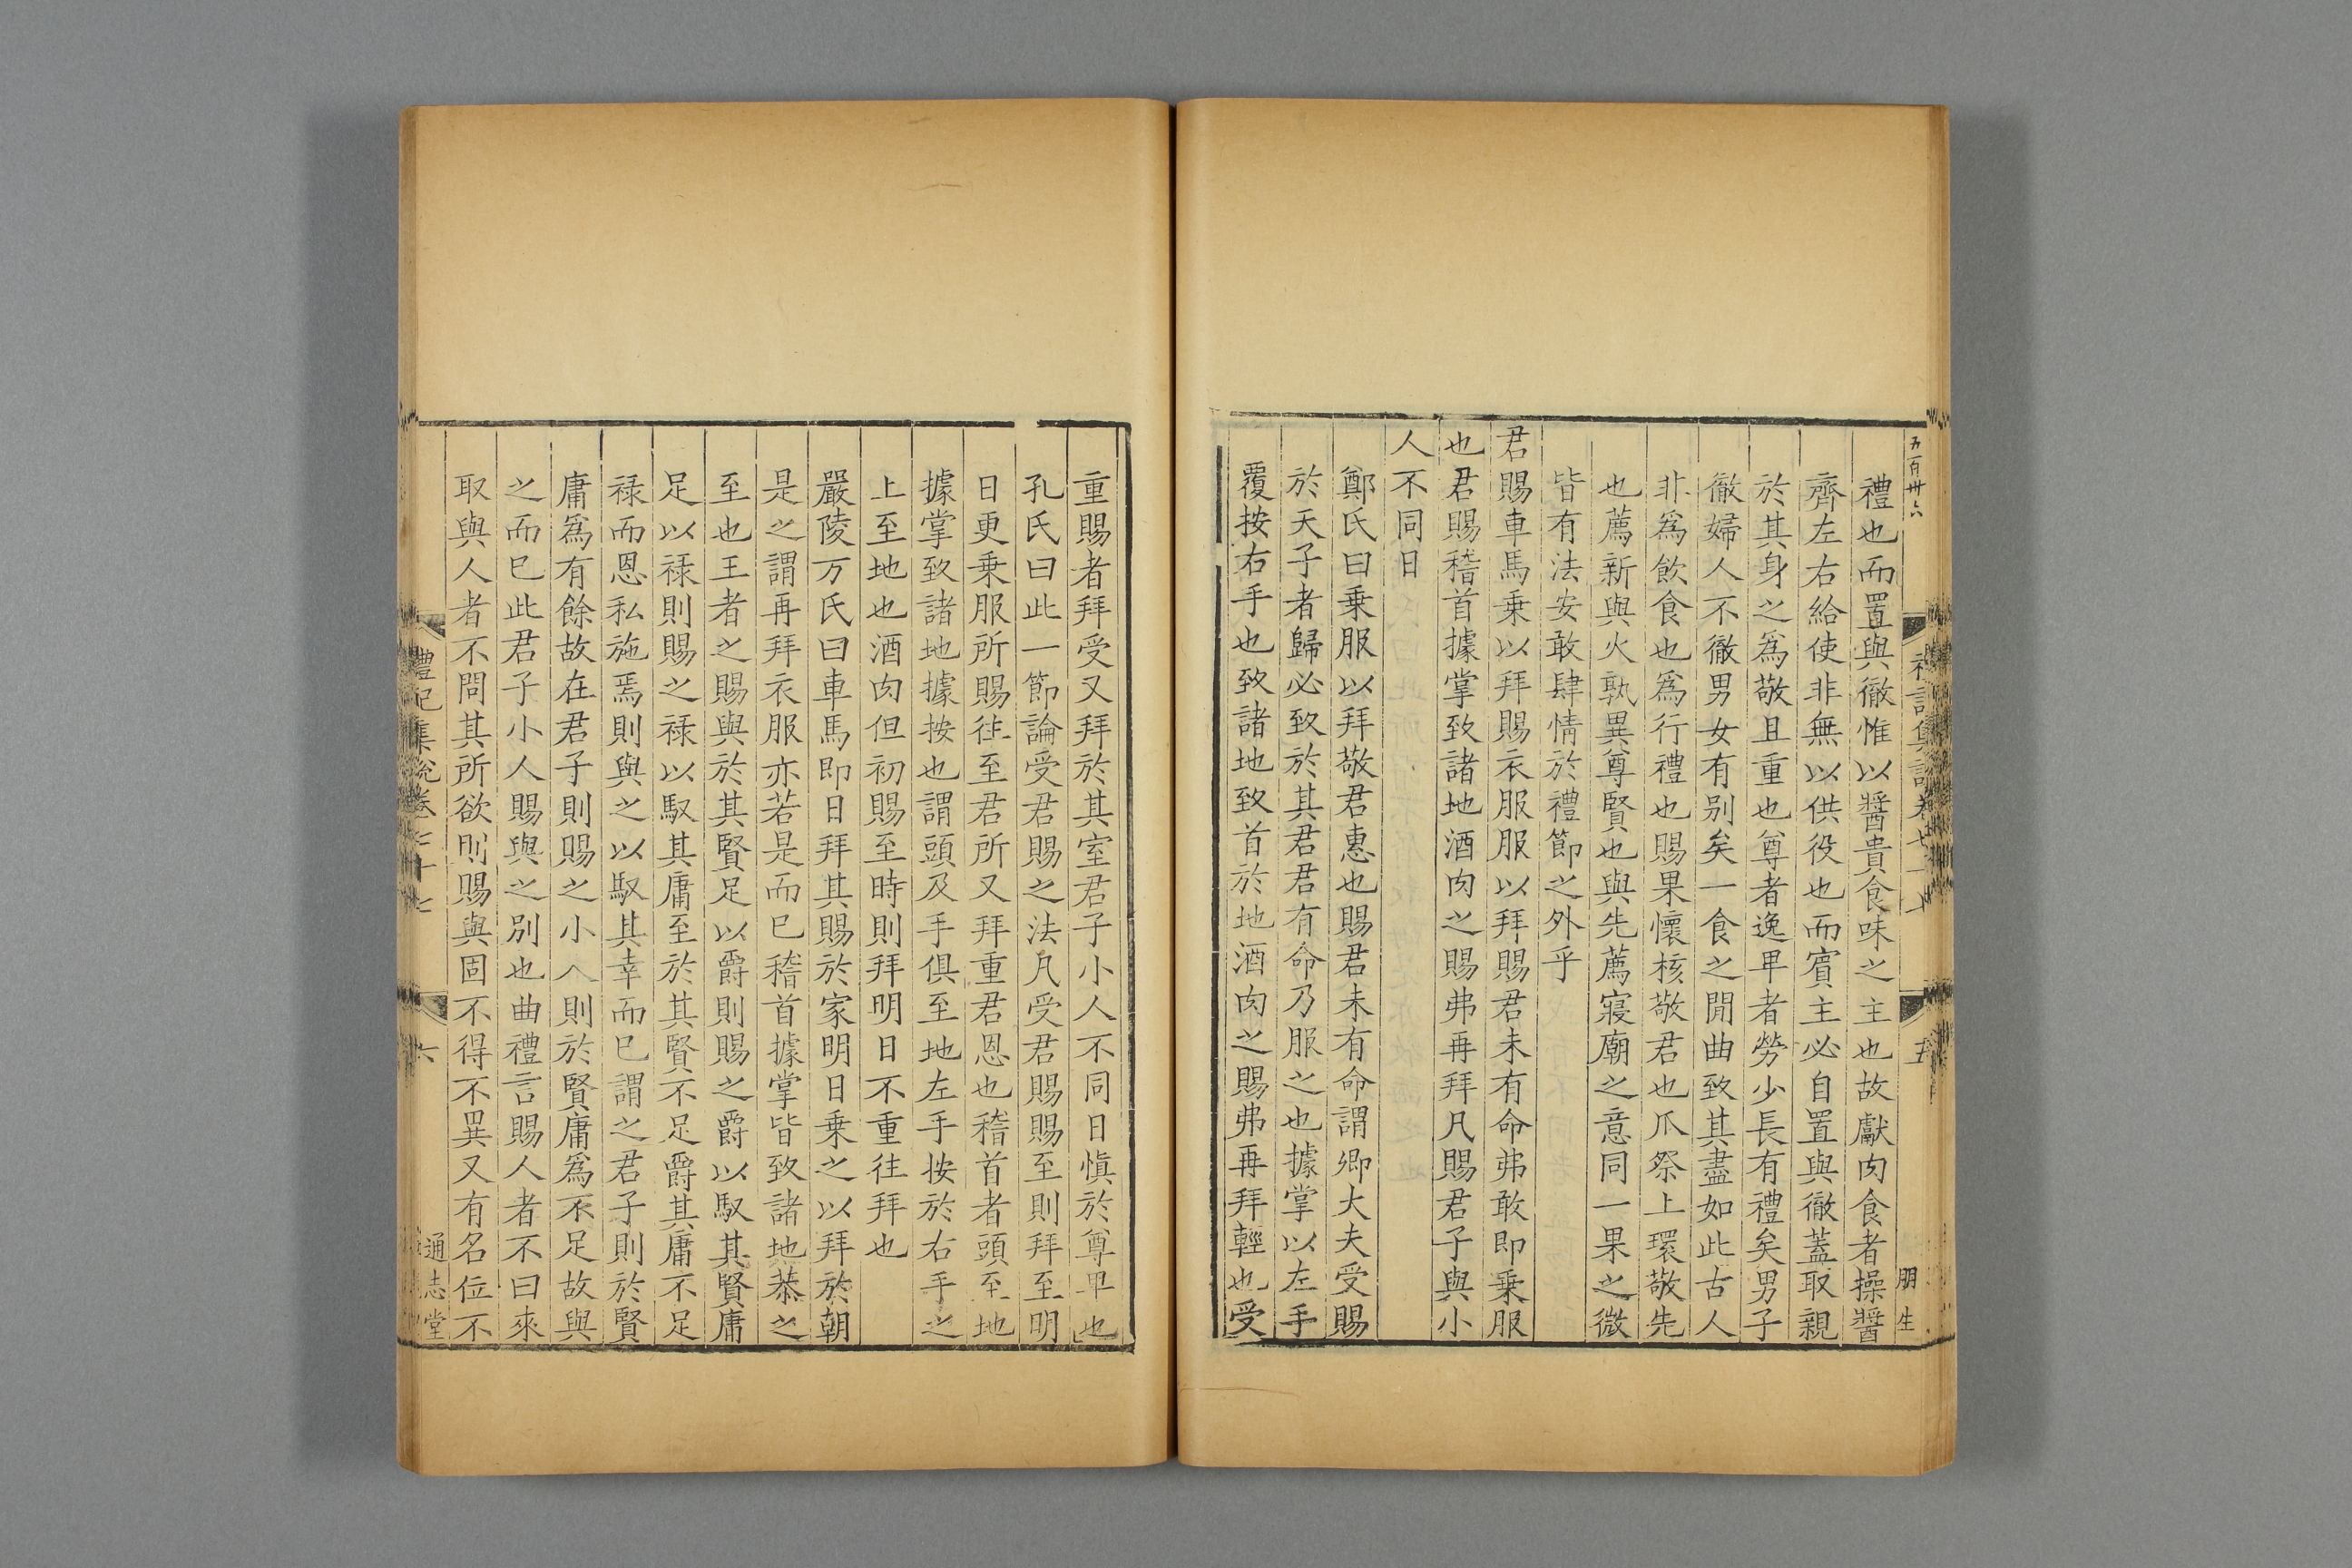 五百卅六
禮也而置與徹惟以醬貴食味之主也故獻肉食者操醬
齊左右給使非無以供役也而賓主必自置與徹蓋取親
於其身之爲敬且重也尊者逸卑者勞少長有禮矣男子
徹婦人不徹男女有别矣一食之閒曲致其盡如此古人
非爲飲食也爲行禮也賜果懷核敬君也爪祭上環敬先
也薦新與火孰異尊賢也與先薦寢廟之意同一果之微
皆有法安敢肆情於禮節之外乎
君賜車馬乗以拜賜衣服服以拜賜君未有命弗敢即乗服
也君賜稽首據掌致諸地酒肉之賜弗再拜凡賜君子與小
人不同日
鄭氏曰乗服以拜敬君惠也賜君未有命謂卿大夫受賜
於天子者歸必致於其君君有命乃服之也據掌以左手
覆按右手也致諸地致首於地酒肉之賜弗再拜輕也受
朋生
五
重賜者拜受又拜於其室君子小人不同日愼於尊卑也
孔氏曰此一節論受君賜之法凡受君賜賜至則拜至明
日更乗服所賜徃至君所又拜重君恩也稽首者頭至地
據掌致諸地據按也謂頭及手俱至地左手按於右手之
上至地也酒肉但初賜至時則拜明日不重徃拜也
嚴陵方氏曰車馬即日拜其賜於家明日乗之以拜於朝
是之謂再拜衣服亦若是而已稽首據掌皆致諸地恭之
至也王者之賜與於其賢足以爵則賜之爵以馭其賢庸
足以禄則賜之禄以馭其庸至於其賢不足爵其庸不足
禄而恩私施焉則與之以馭其幸而已謂之君子則於賢
庸爲有餘故在君子則賜之小人則於賢庸爲不足故與
之而已此君子小人賜與之别也曲禮言賜人者不曰來
取與人者不問其所欲則賜與固不得不異又有名位不
禮記集說卷七十七
六
通志堂